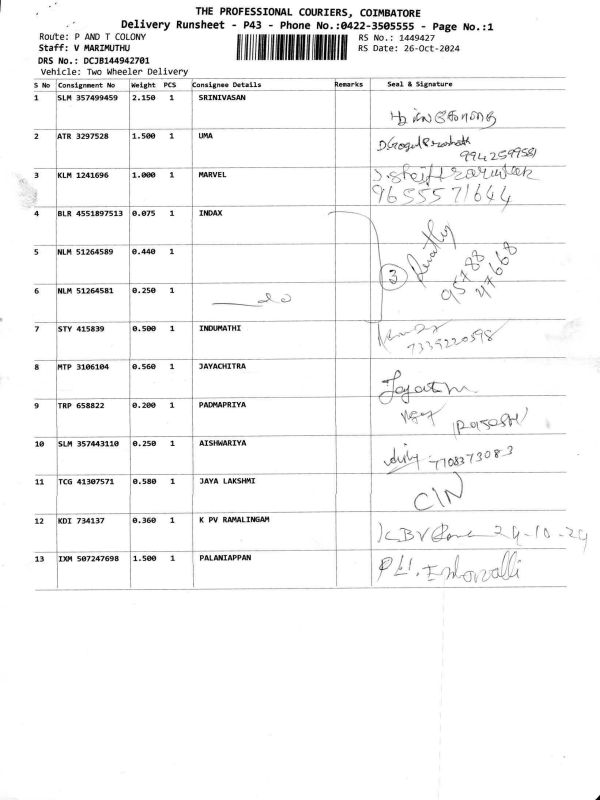 THE PROFESSIONAL COURIERS, COIMBATORE
Delivery Runsheet - P43 - Phone No.:0422-3505555 - Page No.:1
Route: P AND T COLONY
RS No.: 1449427
Staff: V MARIMUTHU
RS Date: 26-Oct-2024
DRS No.: DCJB144942701
Vehicle: Two Wheeler Delivery
S No Consignment No Weight PCS Consignee Details Remarks Seal & Signature
1 SLM 357499459 2.150 1 SRINIVASAN
2 ATR 3297528 1.500 1 UMA
9942599581
3 KLM 1241696 1.000 1 MARVEL
9655571644
4 BLR 4551897513 0.075 1 INDAX
5 NLM 51264589 0.440 1
3 95788 47668
6 NLM 51264581 0.250 1 do
7 STY 415839 0.500 1 INDUMATHI
7339220598
8 MTP 3106104 0.560 1 JAYACHITRA
9 TRP 658822 0.200 1 PADMAPRIYA
10 SLM 357443110 0.250 1 AISHWARIYA
7708373083
11 TCG 41307571 0.580 1 JAYA LAKSHMI
12 KDI 734137 0.360 1 K PV RAMALINGAM
13 IXM 507247698 1.500 1 PALANIAPPAN